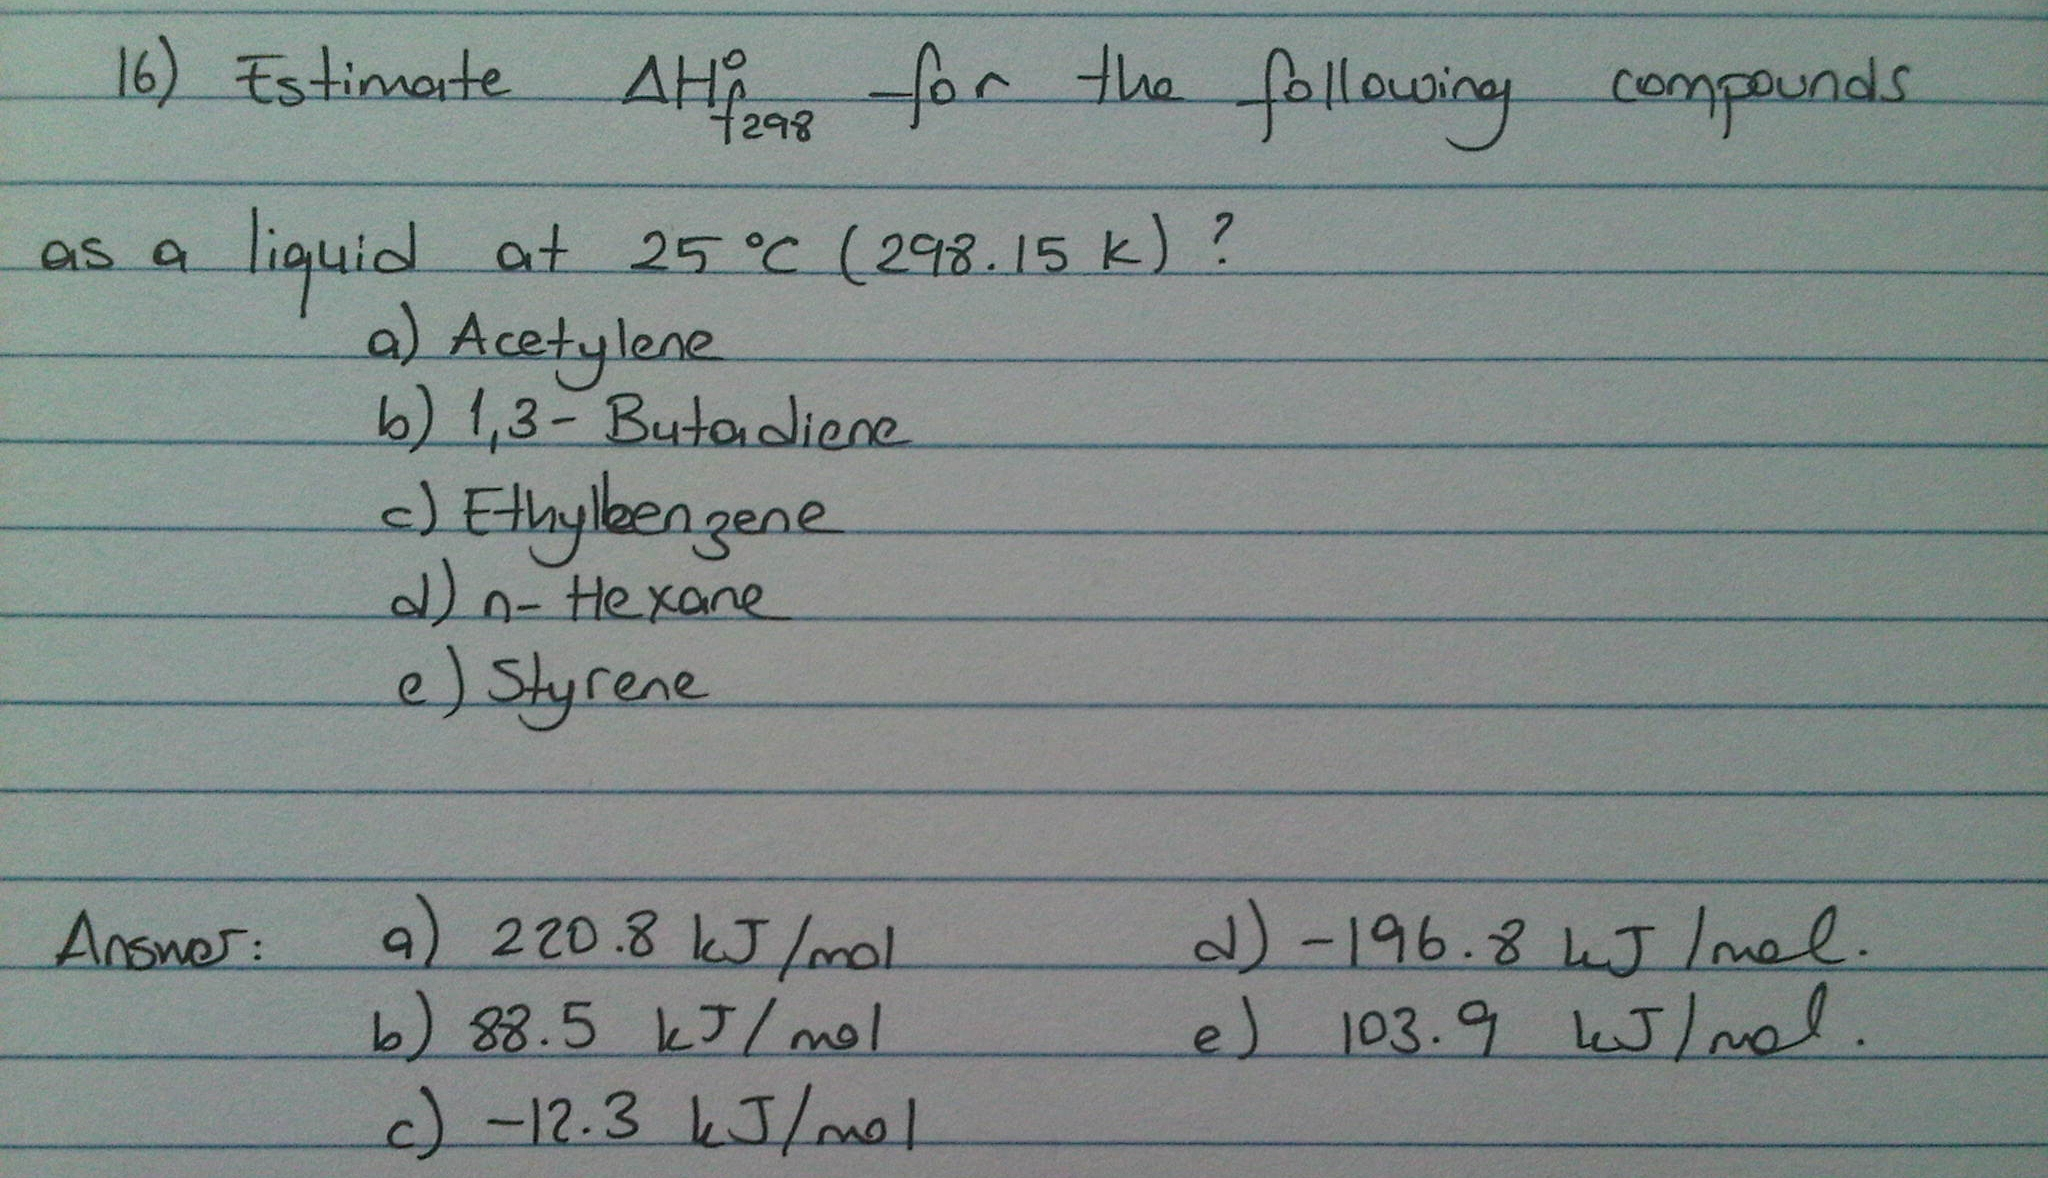 16) Estimate ΔH°f298 for the following compounds
as a liquid at 25 °C (298.15 K) ?
a) Acetylene
b) 1,3- Butadiene
c) Ethylbenzene
d) n- Hexane
e) Styrene
Answer: a) 220.8 kJ/mol d) -196.8 kJ/mol.
b) 88.5 kJ/mol e) 103.9 kJ/mol.
c) -12.3 kJ/mol